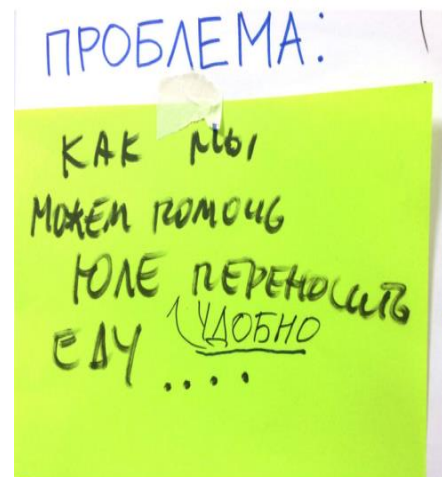 ПРОБЛЕМА:
КАК МЫ
МОЖЕМ ПОМОЧЬ
ЮЛЕ ПЕРЕНОСИТЬ
ЕДУ УДОБНО
....